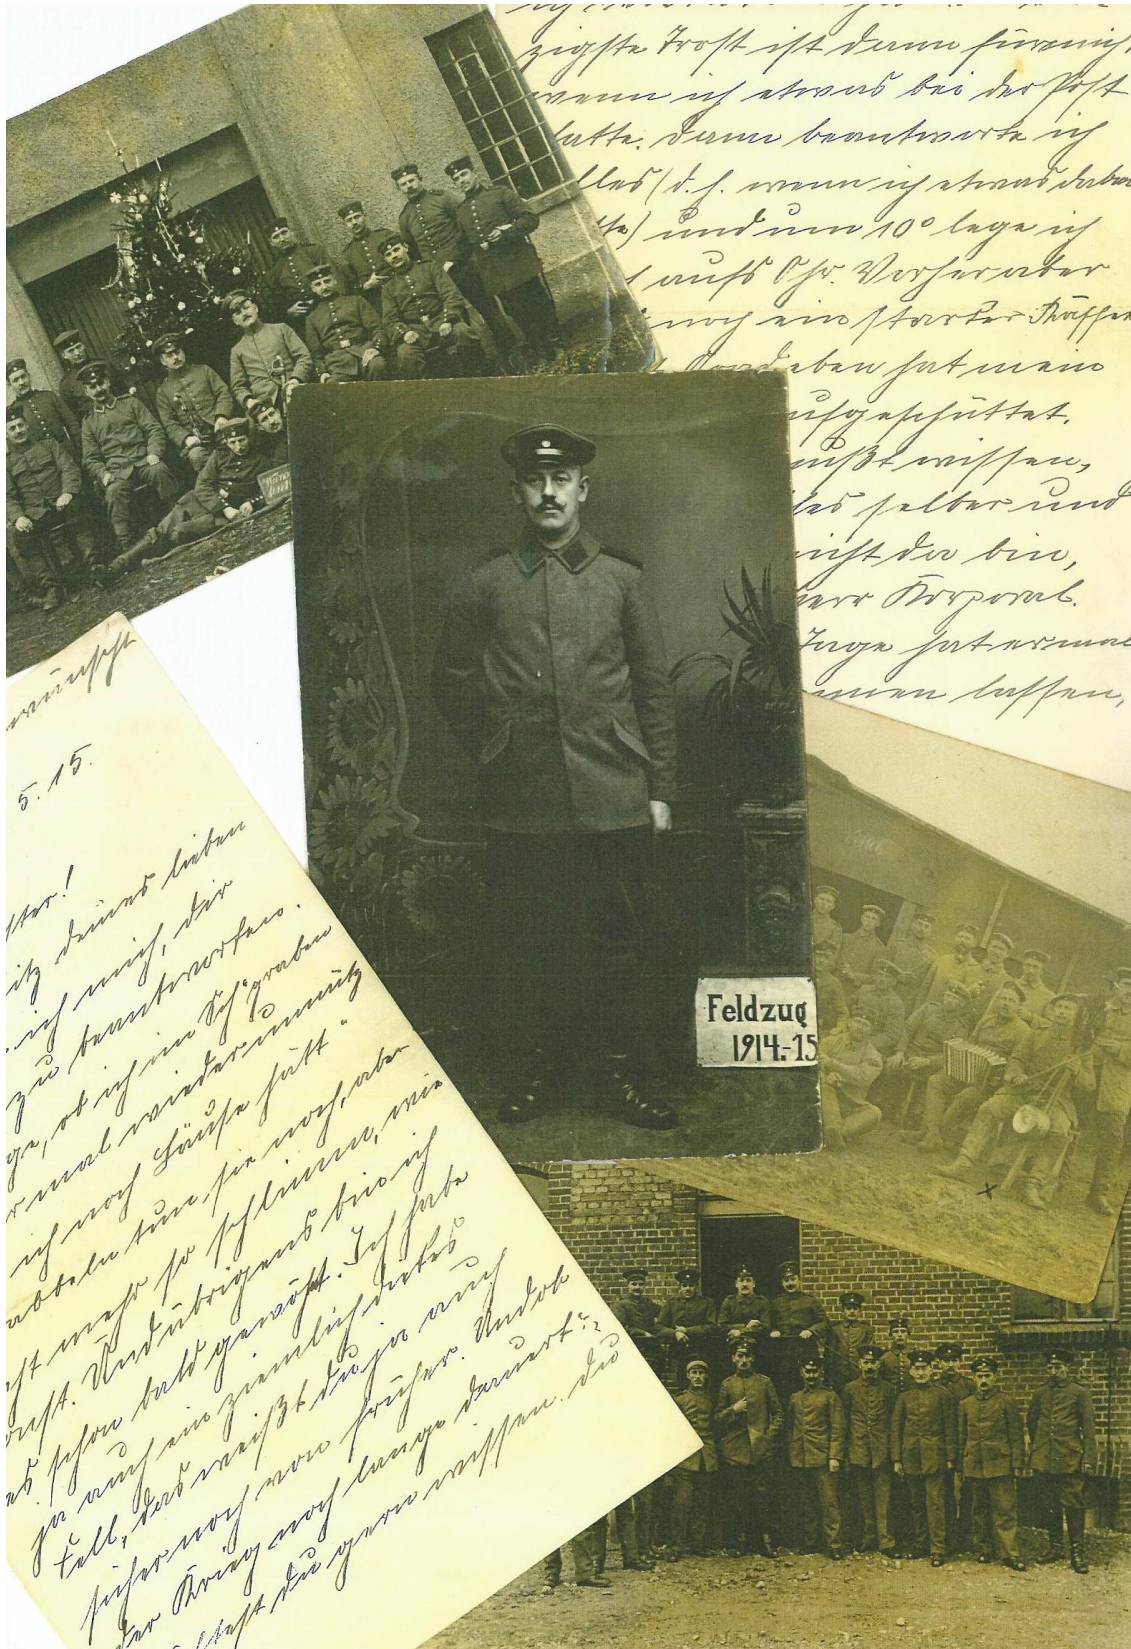 zigste Trost ist dann für mich,
wenn ich etwas bei der Post
hatte. Dann beantworte ich
lles (d. h. wenn ich etwas dabei
tte) und um 10° lege ich
aufs Ohr. Vorher aber
noch ein starker Kaffee
eben hat mein
ufgeschüttet.
mußt wissen,
les selber und
nicht da bin,
Herr Korporal.
Tage hat er mal
men lassen,
wünscht
5. 15.
ster!
itz deines lieben
ich mich, dir
zu beantworten.
ge, ob ich im Sch'graben
mal wieder unnütz
ich noch Läuse hätt"
abbeln tun sie noch, aber
cht mehr so schlimm, wie
onst. Und übrigens bin ich
es schon bald gewöhnt. Ich habe
ja auch ein ziemlich dickes
Fell, das weißt du ja auch
sicher noch von früher. Und ob
der Krieg noch lange dauert??
test du gern wissen. Du
Feldzug
1914.-15
x